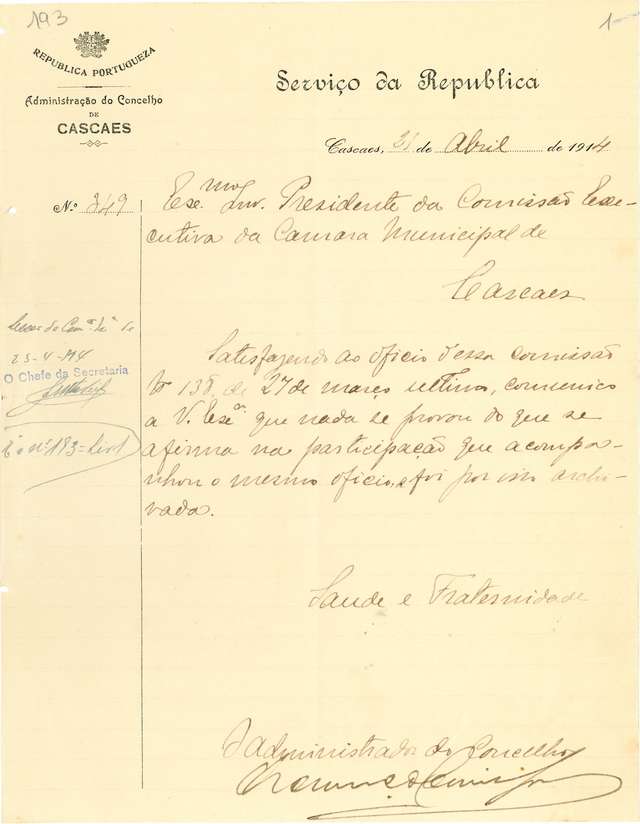 193
1
REPUBLICA PORTUGUEZA
Administração do Concelho
DE
CASCAES
Serviço da Republica
Cascaes, 21 de Abril de 1914
N.º 349
Exc.mo Snr. Presidente da Comissão Exe-
cutiva da Camara Municipal de
Cascaes
23-4-914
O Chefe da Secretaria
É o nº 193=
Satisfazendo ao oficio d'essa comissão
Nº 138, de 27 de março ultimo, comunico
a V. Exª. que nada se provou do que se
afirma na participação que acompa-
nhou o mesmo oficio, e foi por isso archi-
vada.
Saude e Fraternidade
O administrador do Concelho